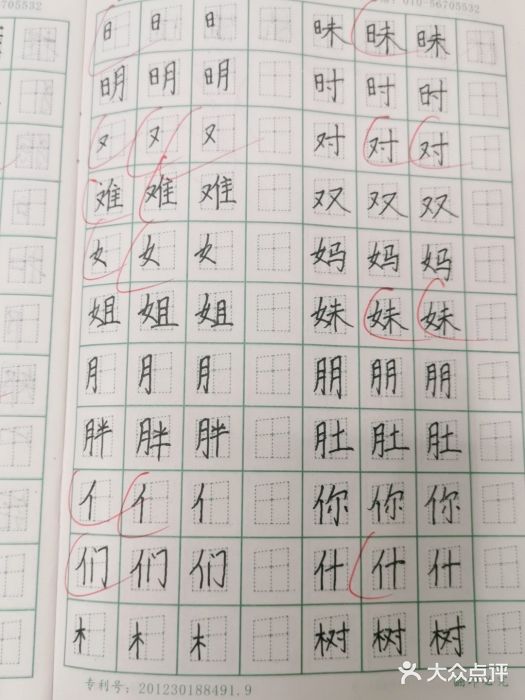 010-56705532
日 日 日 昧 昧 昧
明 明 明 时 时 时
又 又 又 对 对 对
难 难 难 双 双 双
女 女 女 妈 妈 妈
姐 姐 姐 妹 妹 妹
月 月 月 朋 朋 朋
胖 胖 胖 肚 肚 肚
亻 亻 亻 你 你 你
们 们 们 什 什 什
木 木 木 树 树 树
专利号：201230188491.9
大众点评